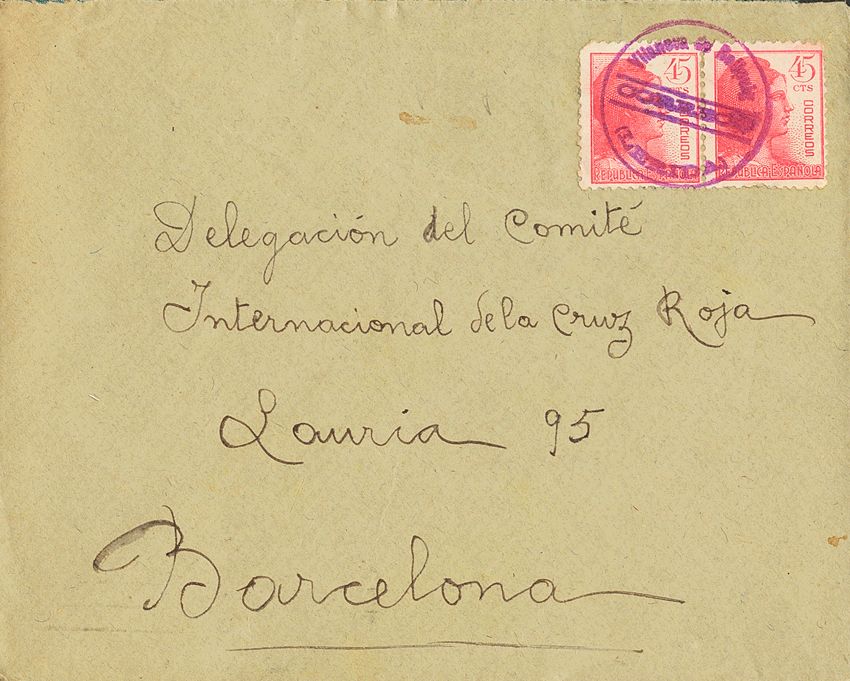 45
CTS
CORREOS
REPUBLICA ESPAÑOLA
45
CTS
CORREOS
REPUBLICA ESPAÑOLA
Vilanova de
(LERIDA)
Delegación del Comité
Internacional de la Cruz Roja
Lauria 95
Barcelona